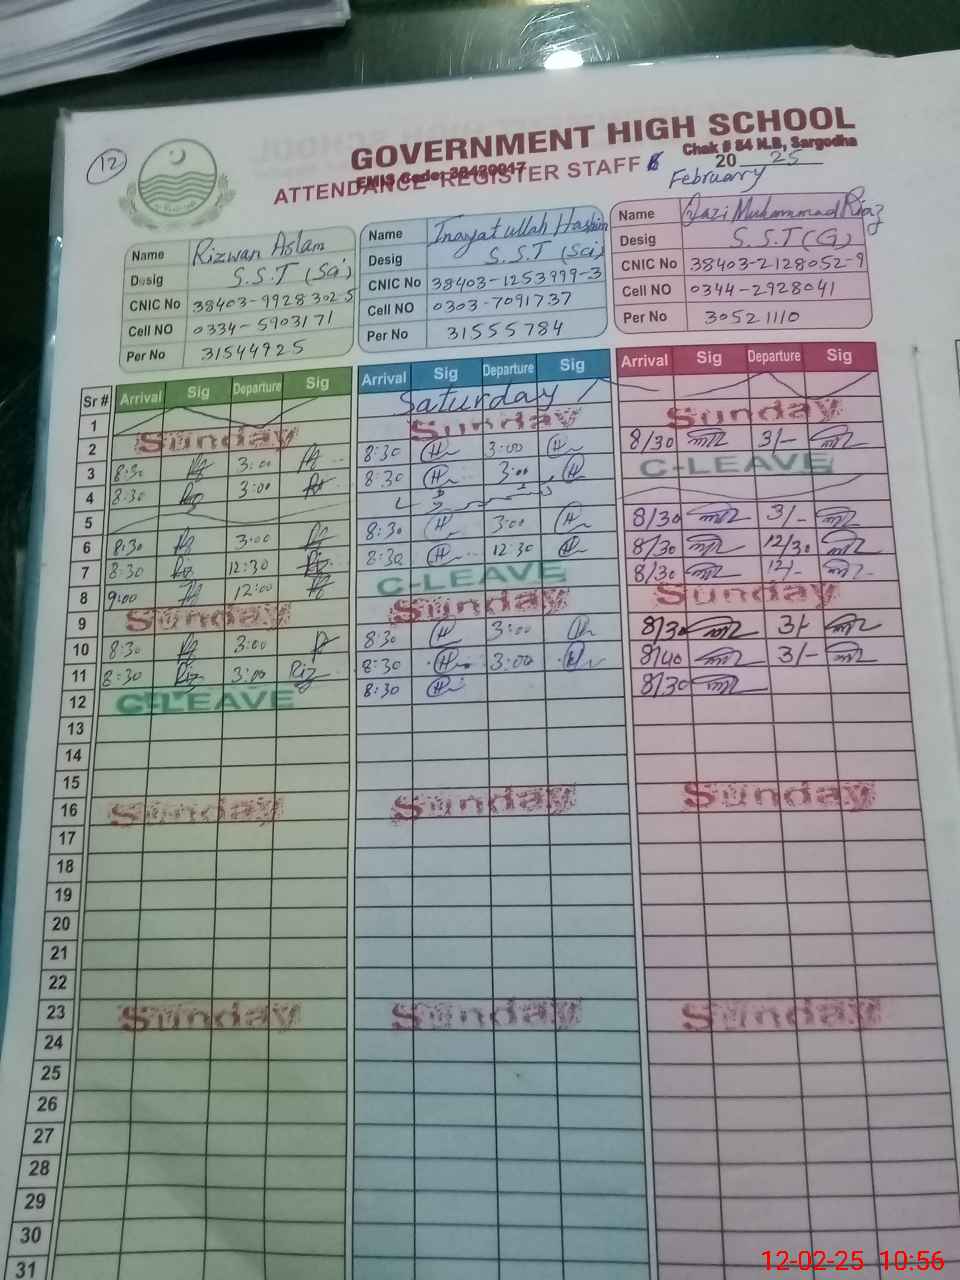 12
GOVERNMENT HIGH SCHOOL
Chak # 84 N.B, Sargodha
EMIS Code: 38420017
ATTENDANCE REGISTER STAFF 2025
February
Name Rizwan Aslam
Desig S.S.T (Sci)
CNIC No 38403-9928302-5
Cell NO 0334-5903171
Per No 31544925
Name Inayat ullah Hashim
Desig S.S.T (Sci)
CNIC No 38403-1253999-3
Cell NO 0303-7091737
Per No 31555784
Name Qazi Muhammad Riaz
Desig S.S.T (G)
CNIC No 38403-2128052-9
Cell NO 0344-2928041
Per No 30521110
Sr # Arrival Sig Departure Sig Arrival Sig Departure Sig Arrival Sig Departure Sig
1 Saturday
2 Sunday Sunday Sunday
3 8:30 3:00 8:30 3:00 8/30 3/-
4 8:30 3:00 8:30 3:00 C-LEAVE
5
6 8:30 3:00 8:30 3:00 8/30 3/-
7 8:30 12:30 8:30 12:30 8/30 12/30
8 9:00 12:00 C-LEAVE 8/30 12/-
9 Sunday Sunday Sunday
10 8:30 3:00 8:30 3:00 8/30 3/-
11 8:30 Riz 3:00 Riz 8:30 3:00 8/40 3/-
12 C-LEAVE 8:30 8/30
13
14
15
16 Sunday Sunday Sunday
17
18
19
20
21
22
23 Sunday Sunday Sunday
24
25
26
27
28
29
30
31
12-02-25 10:56